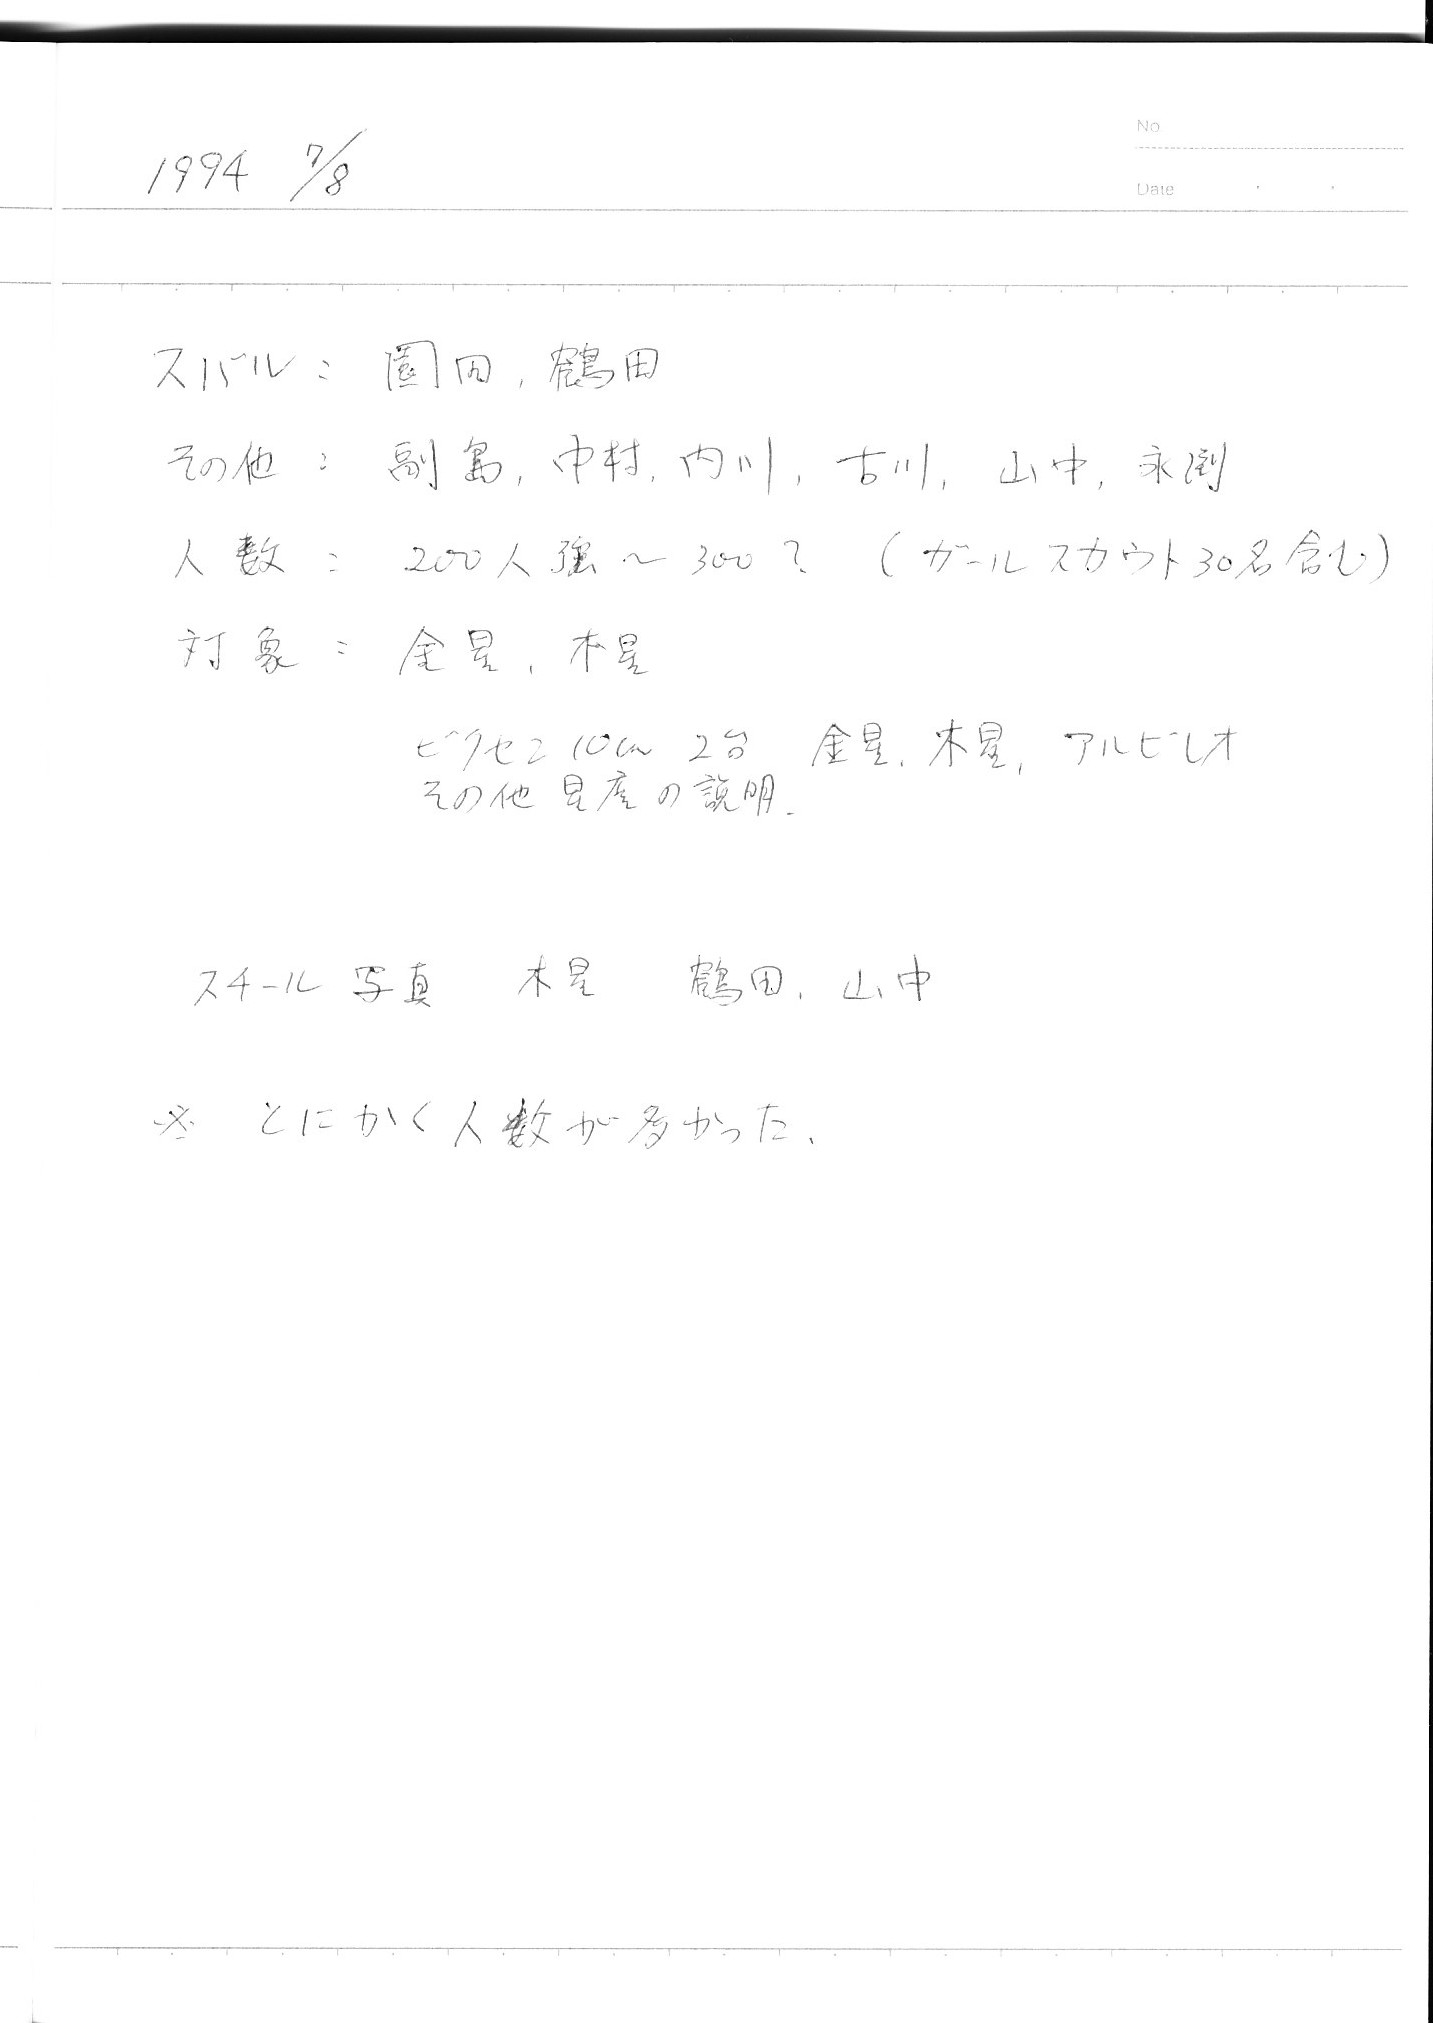 No.
1994 7/8
Date
スバル: 園田, 鶴田
その他: 副島, 中村, 内川, 古川, 山中, 永渕
人数: 200人強～300? (ガールスカウト30名含む)
対象: 金星, 木星
ビクセン10cm 2台 金星, 木星, アルビレオ
その他星座の説明.
スチール写真 木星 鶴田, 山中
※ とにかく人数が多かった.